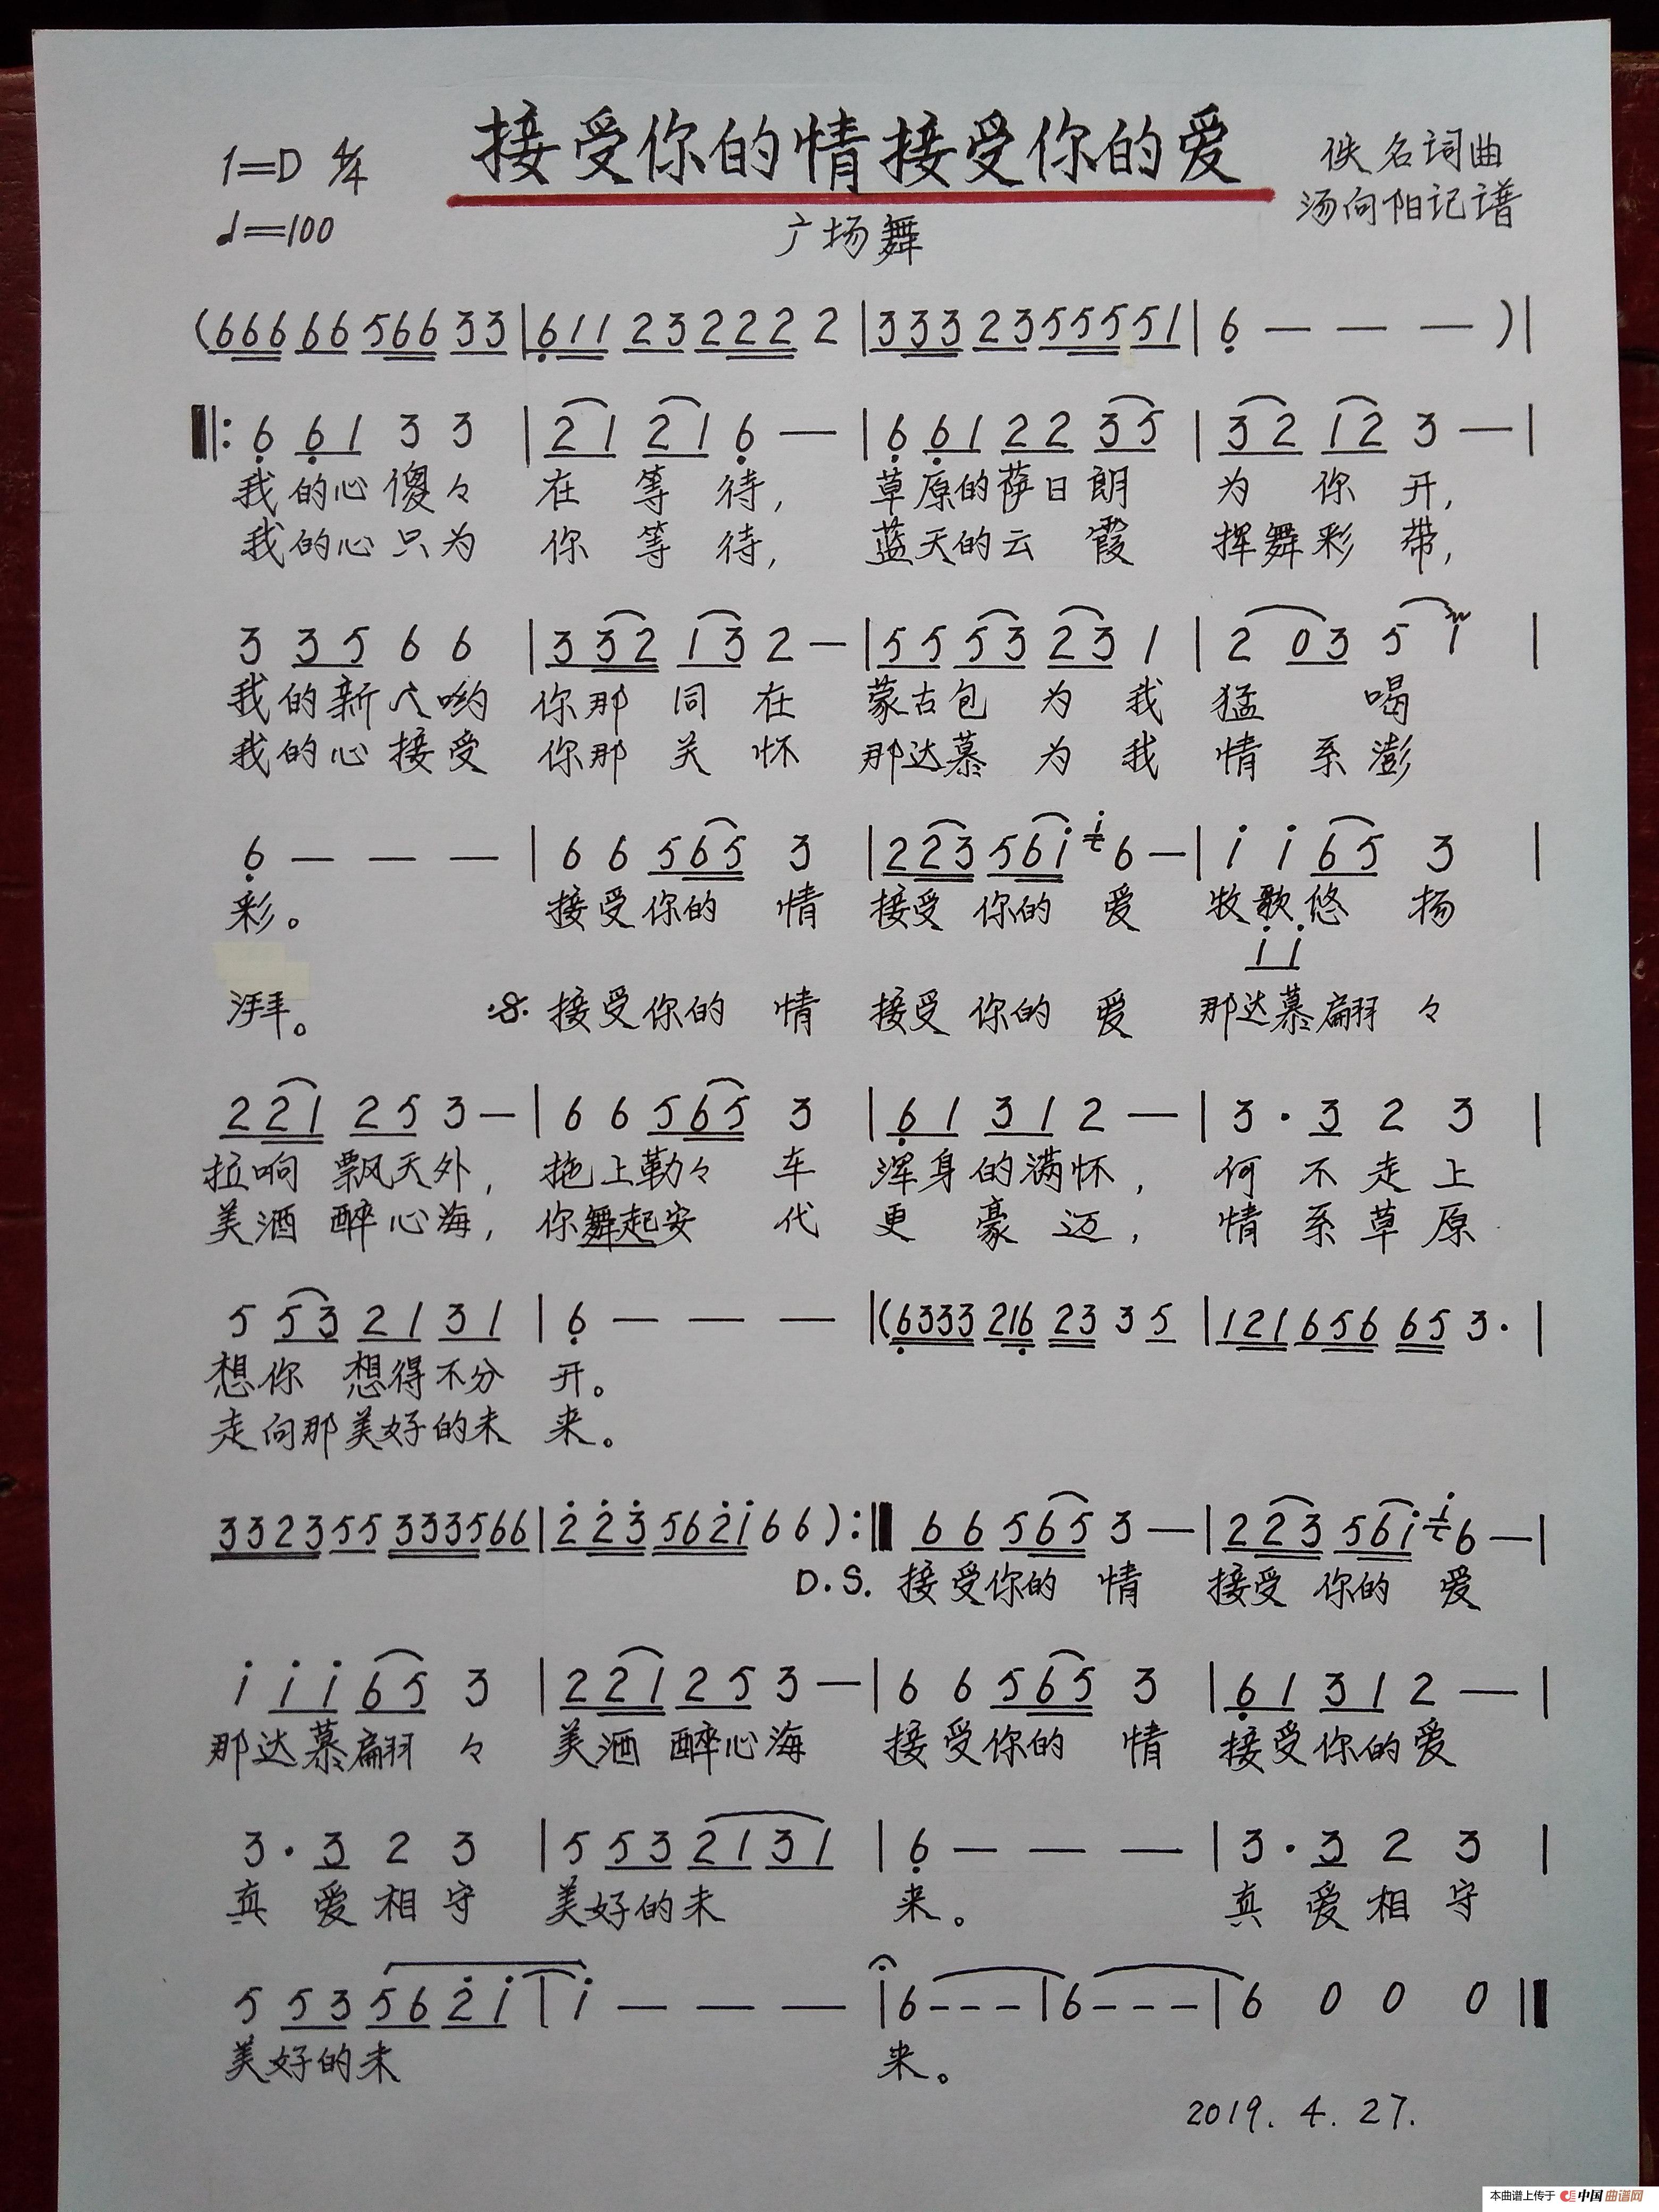 接受你的情接受你的爱
1=D 4/4
♩=100
佚名词曲
汤向阳记谱
广场舞
(666 66 566 33 | 611 23 222 2 | 333 23 5555 51 | 6 — — — )|
‖: 6 61 3 3 | 21 21 6 — | 6 61 22 35 | 32 12 3 — |
我的心傻々 在 等 待, 草原的萨日朗 为 你 开,
我的心只为 你 等 待, 蓝天的云 霞 挥舞彩 带,
3 35 6 6 | 332 13 2 — | 55 53 23 1 | 2 03 5 i |
我的新人哟 你那 同 在 蒙古包 为 我 猛 喝
我的心接受 你那 关 怀 那达慕 为 我 情 系澎
6 — — — | 6 6 565 3 | 223 56i i 6 — | i i 65 3 |
彩。 接受你的 情 接受 你的 爱 牧歌悠 扬
i i
湃。 接受你的 情 接受 你的 爱 那达慕翩 々
221 25 3 — | 6 6 565 3 | 61 31 2 — | 3 · 3 2 3 |
拉响 飘天外, 拖上勒々 车 浑身的满怀, 何 不 走 上
美酒 醉心海, 你舞起安 代 更 豪 迈, 情 系 草 原
5 53 21 31 | 6 — — — |(6333 216 23 3 5 | 121 656 65 3 · |
想你 想得不分 开。
走向那美好的未 来。
3323 55 333566 | 223 562i 6 6 ):‖ 6 6 565 3 — | 223 56i i 6 — |
D.S. 接受你的 情 接受 你的 爱
i i i 65 3 | 221 25 3 — | 6 6 565 3 | 61 31 2 — |
那达慕翩 々 美酒 醉心海 接受你的 情 接受你的爱
3 · 3 2 3 | 5 53 21 31 | 6 — — — | 3 · 3 2 3 |
真 爱相守 美好的未 来。 真 爱相守
5 53 56 2i | i — — — | 6 - - - | 6 - - - | 6 0 0 0 ‖
美好的未 来。
2019. 4. 27.
本曲谱上传于 中国曲谱网